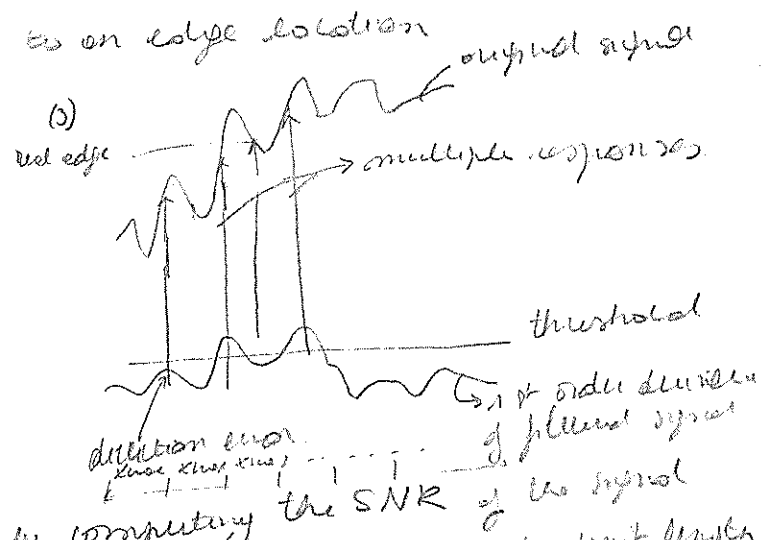 to an edge location
original signal
(3)
real edge
multiple responses
threshold
1st order derivative
of filtered signal
detection error
xmax xmax xmax
computing the SNR of the signal
length